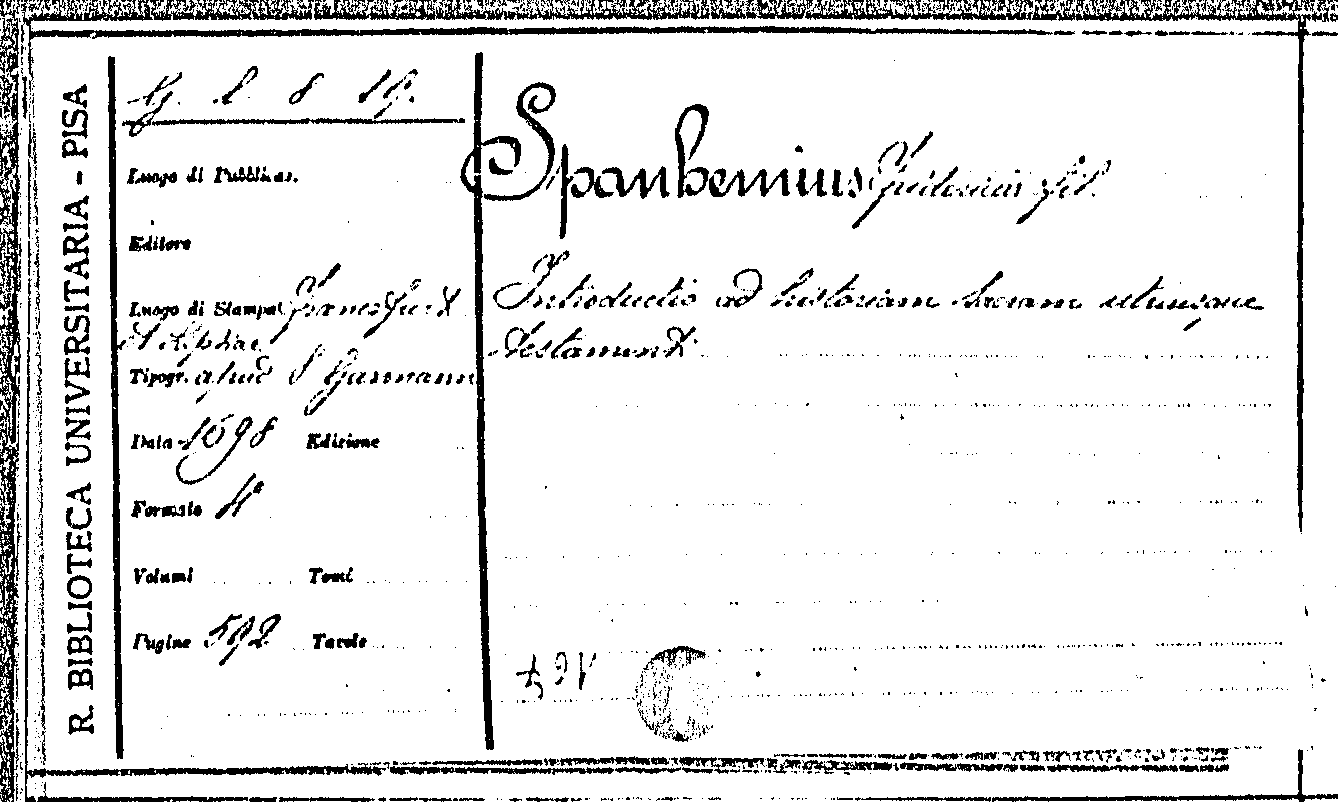 R. BIBLIOTECA UNIVERSITARIA - PISA
G. l. 8 19.
Luogo di Pubblicaz.
Editore
Luogo di Stampa Francofurt
Tipogr. apud
Data 1698 Edizione
Formato 4°
Volumi Tomi
Pagine 592 Tavole
Spanhemius Fridericus fil.
Introductio ad historiam sacram utriusque
testamenti